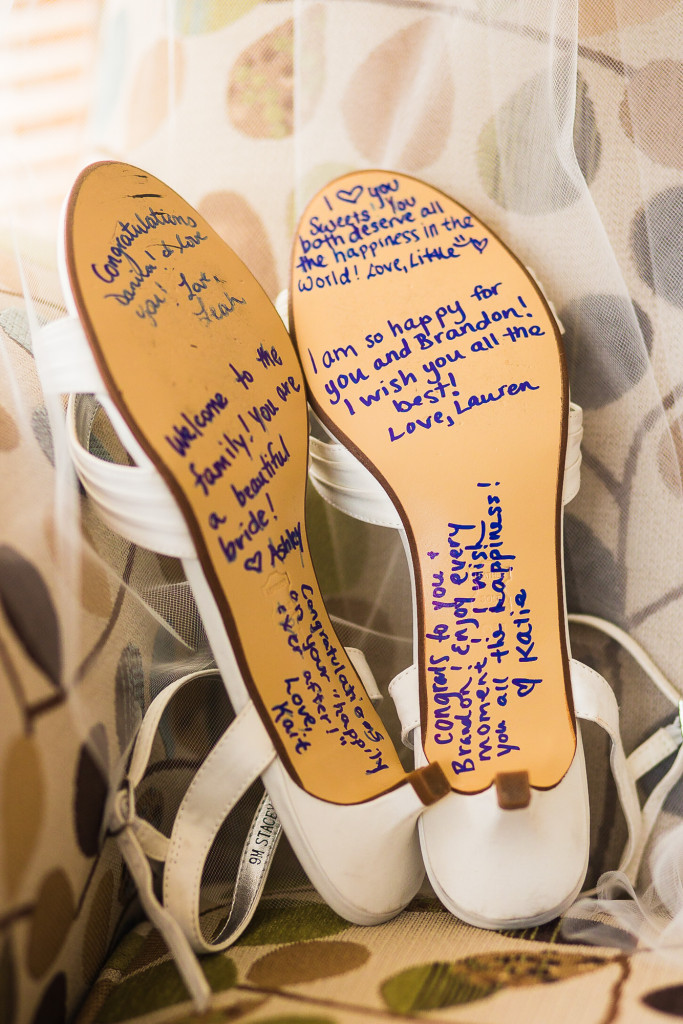 Congratulations
Danila! I Love
you! Love,
Leah
Welcome to the
family! You are
a beautiful
bride!
♡ Ashley
Congratulations
on your "happily
ever after!"
Love,
Kait
9M STACEY
I ♡ you
Sweets! You
both deserve all
the happiness in the
World! Love, Little" ♡
I am so happy for
you and Brandon!
I wish you all the
best!
Love, Lauren
congrats to you +
Brandon! Enjoy every
moment I wish
you all the happiness!
♡ Katie